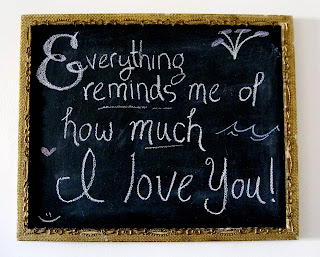 Everything
reminds me of
how much
I love You!